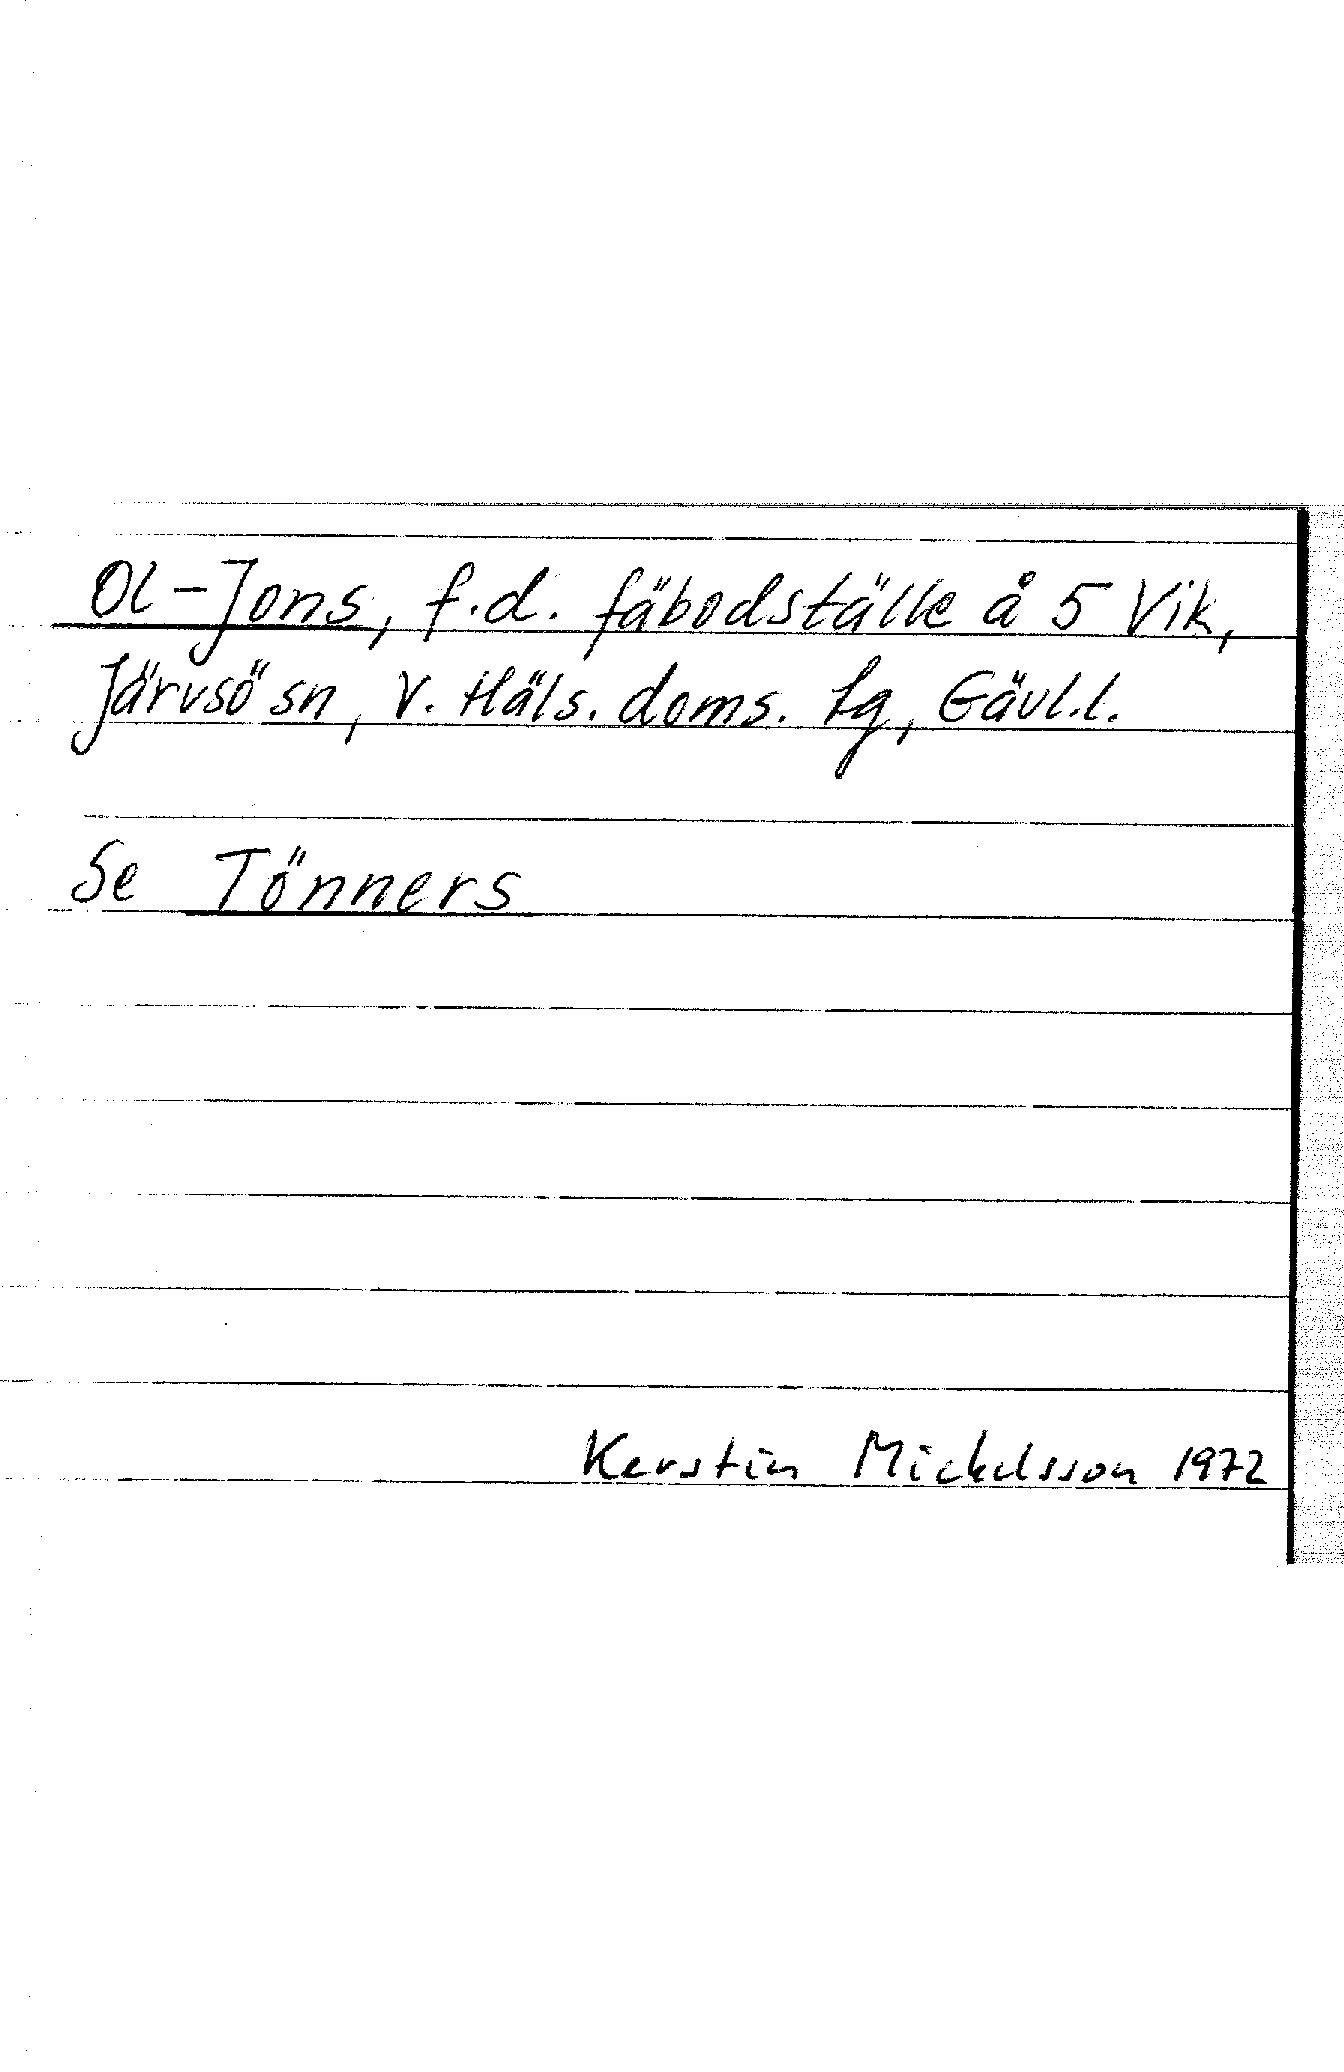 Ol-Jons, f.d. fäbodställe å 5 Vik,
Järvsö sn, V. Häls. doms. tg, Gävl.l.
Se Tönners
Kerstin Mickelsson 1972